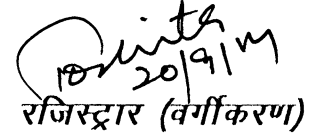 20/9/14
रजिस्ट्रार (वर्गीकरण)